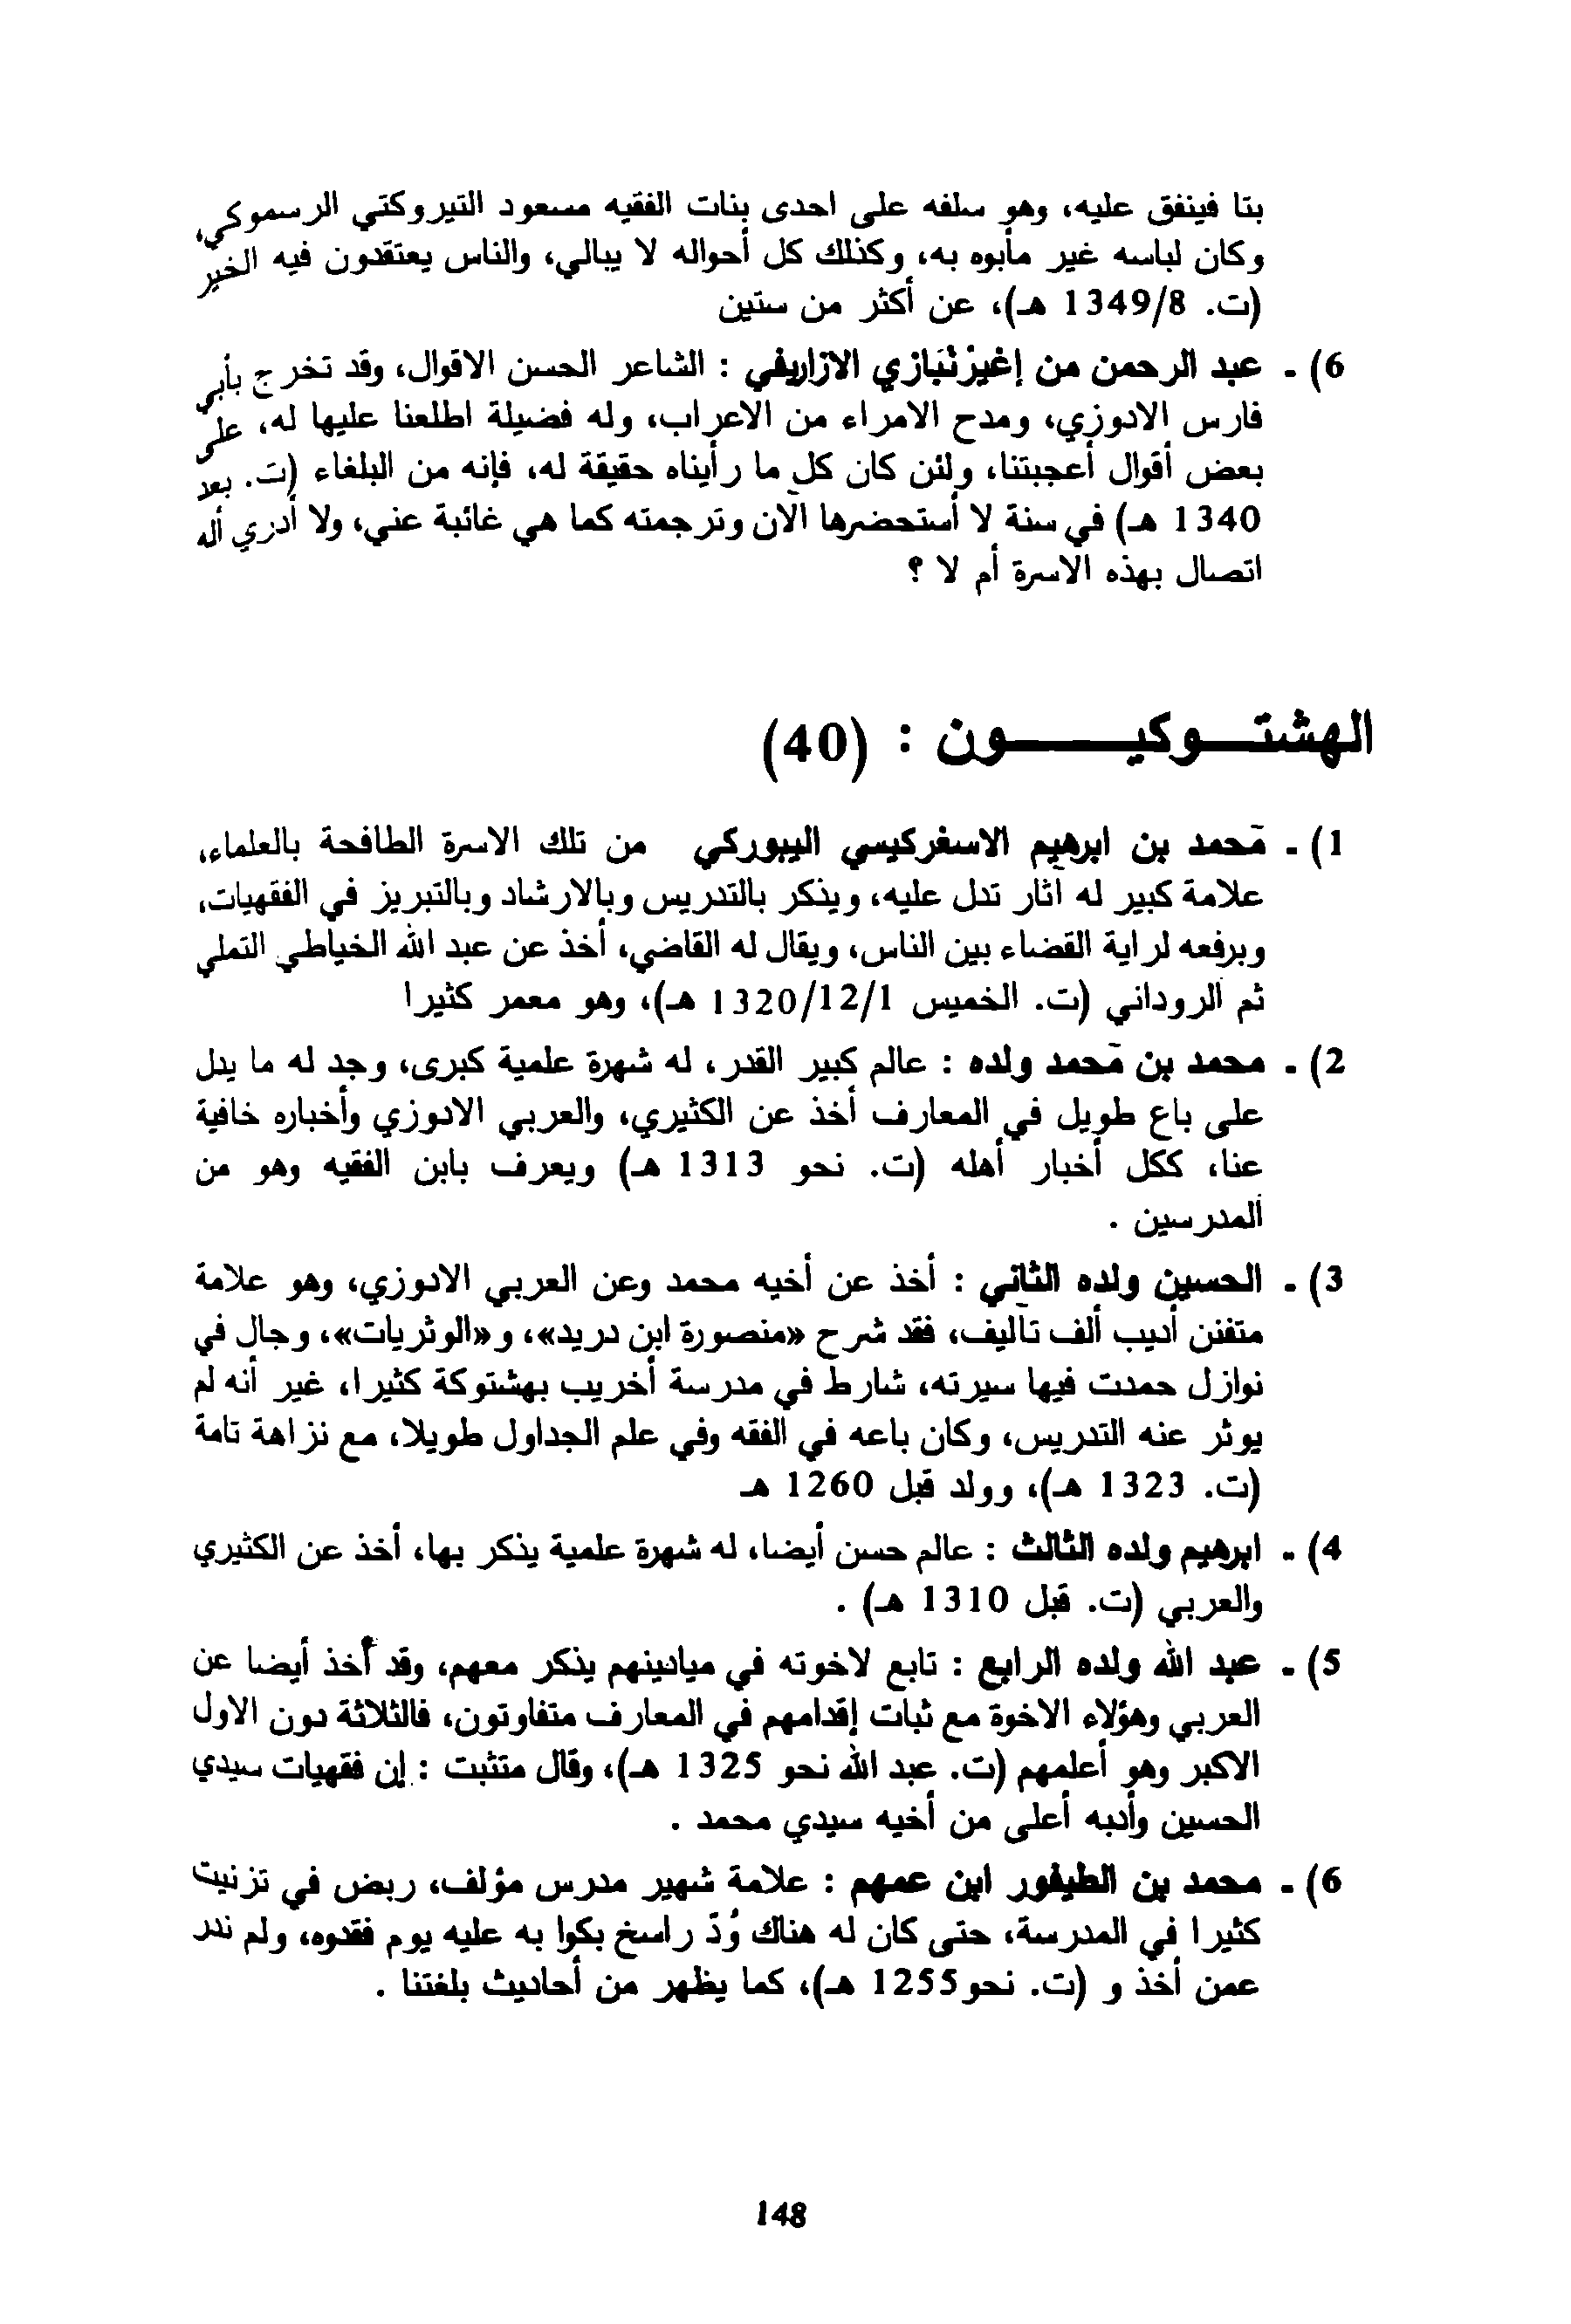 بتا فينفق عليه، وهو سلفه على احدى بنات الفقيه مسعود التيروكتي الرسموكي،
وكان لباسه غير مأبوه به، وكذلك كل أحواله لا يبالي، والناس يعتقدون فيه الخير
(ت. 1349/8 هـ)، عن أكثر من ستين
6) - عبد الرحمن من إغيرنْبازي الازاريفي : الشاعر الحسن الاقوال، وقد تخرج بأبي
فارس الادوزي، ومدح الامراء من الاعراب، وله فضيلة اطلعنا عليها له، على
بعض أقوال أعجبتنا، ولئن كان كل ما رأيناه حقيقة له، فإنه من البلغاء (ت. بعد
1340 هـ) في سنة لا أستحضرها الآن وترجمته كما هي غائبة عني، ولا أدري أله
اتصال بهذه الاسرة أم لا ؟
الهشتـوكيـــون : (40)
1) - مَحمد بن ابرهيم الاسغركيسي اليبوركي من تلك الاسرة الطافحة بالعلماء،
علامة كبير له آثار تدل عليه، ويذكر بالتدريس وبالارشاد وبالتبريز في الفقهيات،
وبرفعه لراية القضاء بين الناس، ويقال له القاضي، أخذ عن عبد الله الخياطي التملي
ثم الروداني (ت. الخميس 1320/12/1 هـ)، وهو معمر كثيرا
2) - محمد بن مَحمد ولده : عالم كبير القدر، له شهرة علمية كبرى، وجد له ما يدل
على باع طويل في المعارف أخذ عن الكثيري، والعربي الادوزي وأخباره خافية
عنا، ككل أخبار أهله (ت. نحو 1313 هـ) ويعرف بابن الفقيه وهو من
المدرسين .
3) - الحسين ولده الثاني : أخذ عن أخيه محمد وعن العربي الادوزي، وهو علامة
متفنن أديب ألف تآليف، فقد شرح «منصورة ابن دريد»، و«الوثريات»، وجال في
نوازل حمدت فيها سيرته، شارط في مدرسة أخريب بهشتوكة كثيرا، غير أنه لم
يوثر عنه التدريس، وكان باعه في الفقه وفي علم الجداول طويلا، مع نزاهة تامة
(ت. 1323 هـ)، وولد قبل 1260 هـ
4) - ابرهيم ولده الثالث : عالم حسن أيضا، له شهرة علمية يذكر بها، أخذ عن الكثيري
والعربي (ت. قبل 1310 هـ) .
5) - عبد الله ولده الرابع : تابع لاخوته في ميادينهم يذكر معهم، وقد أخذ أيضا عن
العربي وهؤلاء الاخوة مع ثبات إقدامهم في المعارف متفاوتون، فالثلاثة دون الاول
الاكبر وهو أعلمهم (ت. عبد الله نحو 1325 هـ)، وقال متثبت : إن فقهيات سيدي
الحسين وأدبه أعلى من أخيه سيدي محمد .
6) - محمد بن الطيفور ابن عمهم : علامة شهير مدرس مؤلف، ربض في تزنيت
كثيرا في المدرسة، حتى كان له هناك وُدّ راسخ بكوا به عليه يوم فقدوه، ولم ندر
عمن أخذ و (ت. نحو1255 هـ)، كما يظهر من أحاديث بلغتنا .
148